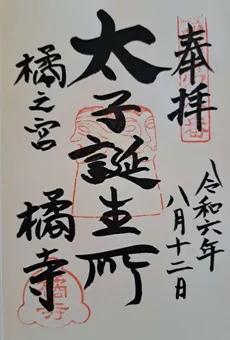 奉拝
令和六年
八月十二日
太子誕生所
橘之宮
橘寺